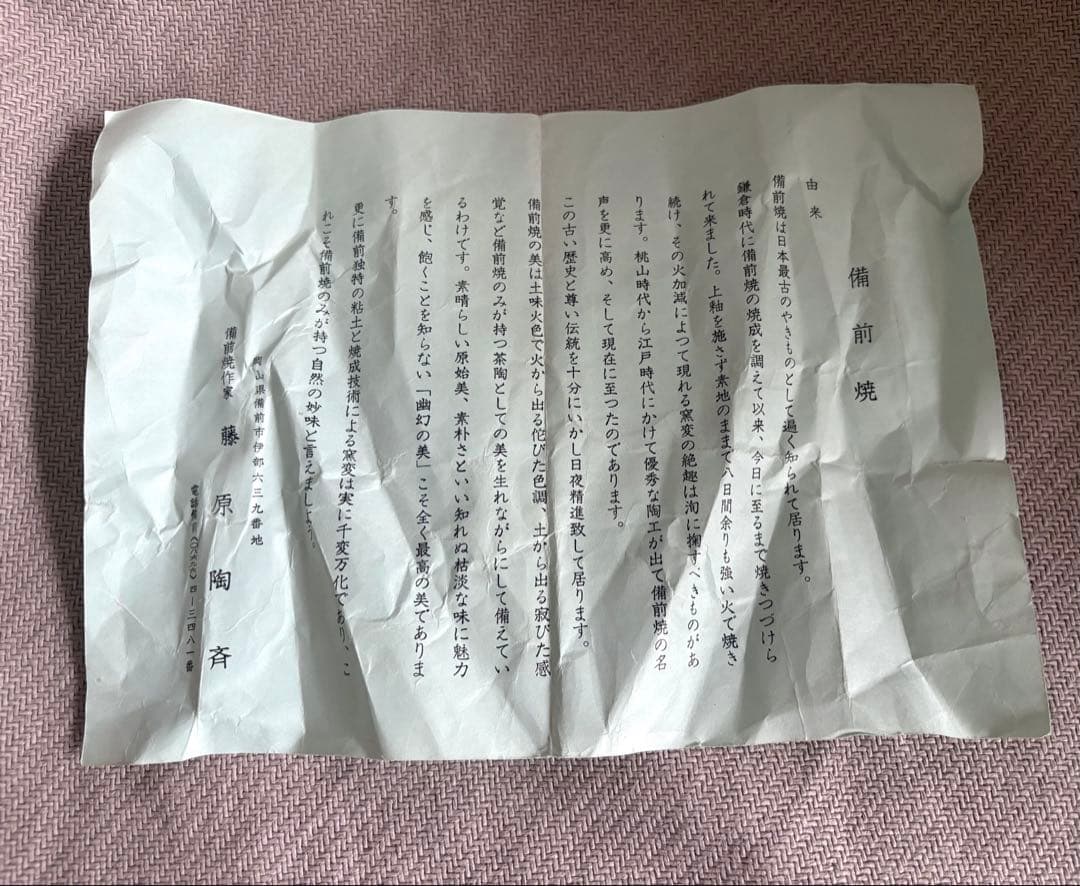 備前焼
由来
備前焼は日本最古のやきものとして遍く知られて居ります。
鎌倉時代に備前焼の焼成を調えて以来、今日に至るまで焼きつづけら
れて来ました。上釉を施さず素地のままで八日間余りも強い火で焼き
続け、その火加減によつて現れる窯変の絶趣は洵に掬すべきものがあ
ります。桃山時代から江戸時代にかけて優秀な陶工が出て備前焼の名
声を更に高め、そして現在に至つたのであります。
この古い歴史と尊い伝統を十分にいかし日夜精進致して居ります。
備前焼の美は土味火色で火から出る侘びた色調、土から出る寂びた感
覚など備前焼のみが持つ茶陶としての美を生れながらにして備えてい
るわけです。素晴らしい原始美、素朴さといい知れぬ枯淡な味に魅力
を感じ、飽くことを知らない「幽幻の美」こそ全く最高の美でありま
す。
更に備前独特の粘土と焼成技術による窯変は実に千変万化であり、こ
れこそ備前焼のみが持つ自然の妙味と言えましよう。
岡山県備前市伊部六三九番地
備前焼作家 藤原陶斉
電話備前(〇八六九六)四―三四八一番